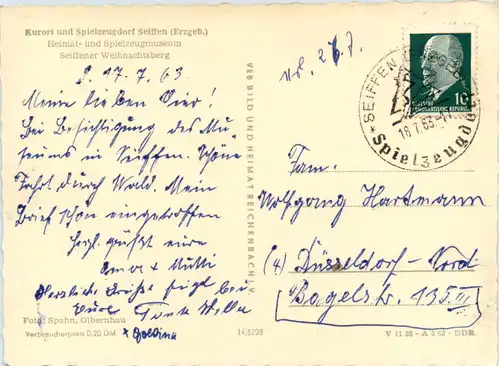 Kurort und Spielzeugdorf Seiffen (Erzgeb.)
Heimat- und Spielzeugmuseum
Seiffener Weihnachtsberg
17. 7. 63.
Meine lieben Vier!
Bei Besichtigung des Mu-
seums in Seiffen. Schöne
Fahrt durch Wald. Mein
Brief schon eingetroffen
Herzl. grüßt eure
Oma + Mutti
Herzliche Grüße fügt bei
Eure Tante
Foto: Spahn, Olbernhau
Verbraucherpreis 0,20 DM
14/5228
VEB BILD UND HEIMAT REICHENBACH I. V.
SEIFFEN (ERZGEB)
18.7.63
* Spielzeugdorf
DEUTSCHE
DEMOKRATISCHE REPUBLIK
10
Fam.
Wolfgang Hartmann
(4) Düsseldorf-Nord
Bagelstr. 135 III
V 11 28 - A 3 63 - DDR